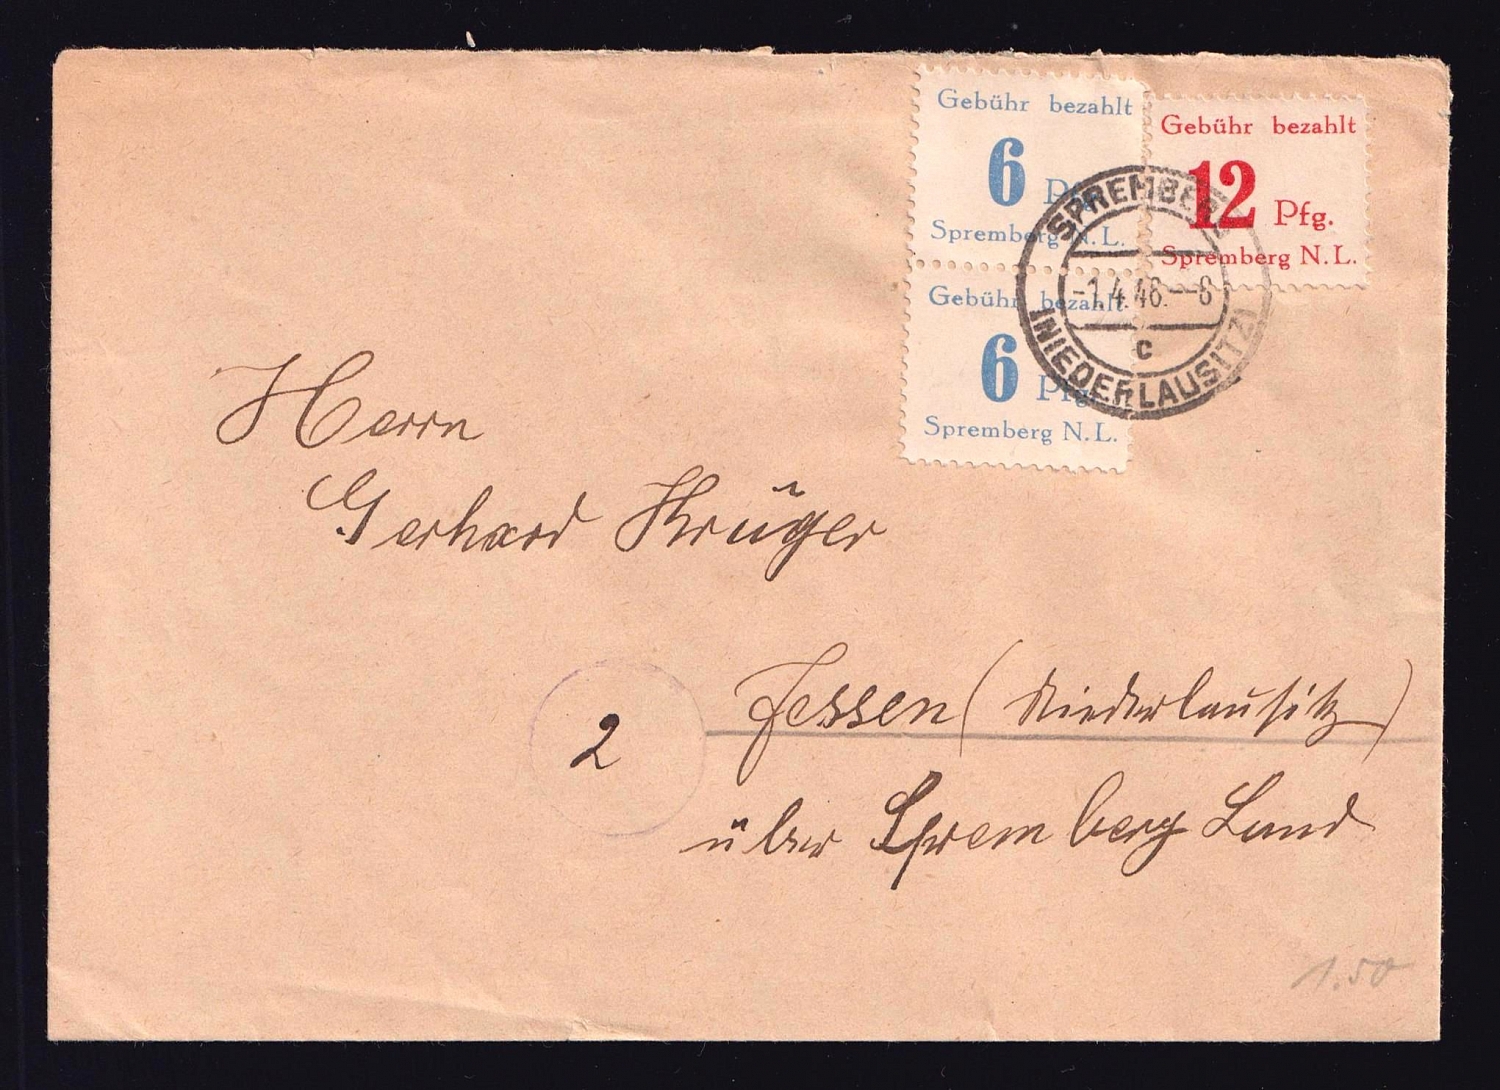 Gebühr bezahlt
6 Pfg.
Spremberg N.L.
Gebühr bezahlt
12 Pfg.
Spremberg N.L.
Gebühr bezahlt
6 Pfg.
Spremberg N.L.
SPREMBERG
-1.4.46.--8
c
(NIEDERLAUSITZ)
Herrn
Gerhard Krüger
2
Jessen (Niederlausitz)
über Spremberg Land
1.50